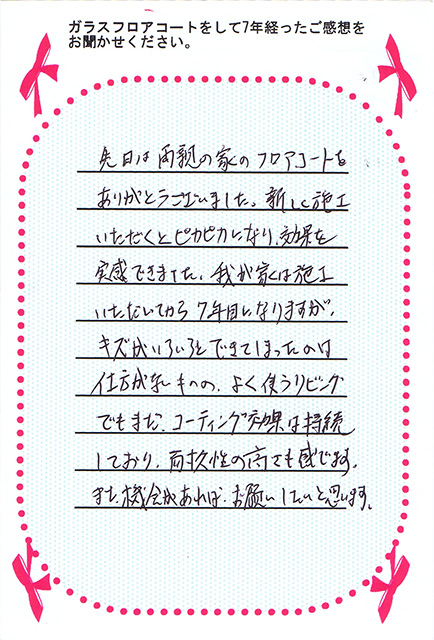 ガラスフロアコートをして7年経ったご感想を
お聞かせください。
先日は両親の家のフロアコートを
ありがとうございました。新しく施工
いただくとピカピカになり、効果を
実感できました。我が家は施工
いただいてから7年目になりますが、
キズがいろいろとできてしまったのは
仕方がないものの、よく使うリビング
でもまだ、コーティング効果は持続
しており、耐久性の高さも感じます。
また、機会があれば、お願いしたいと思います。